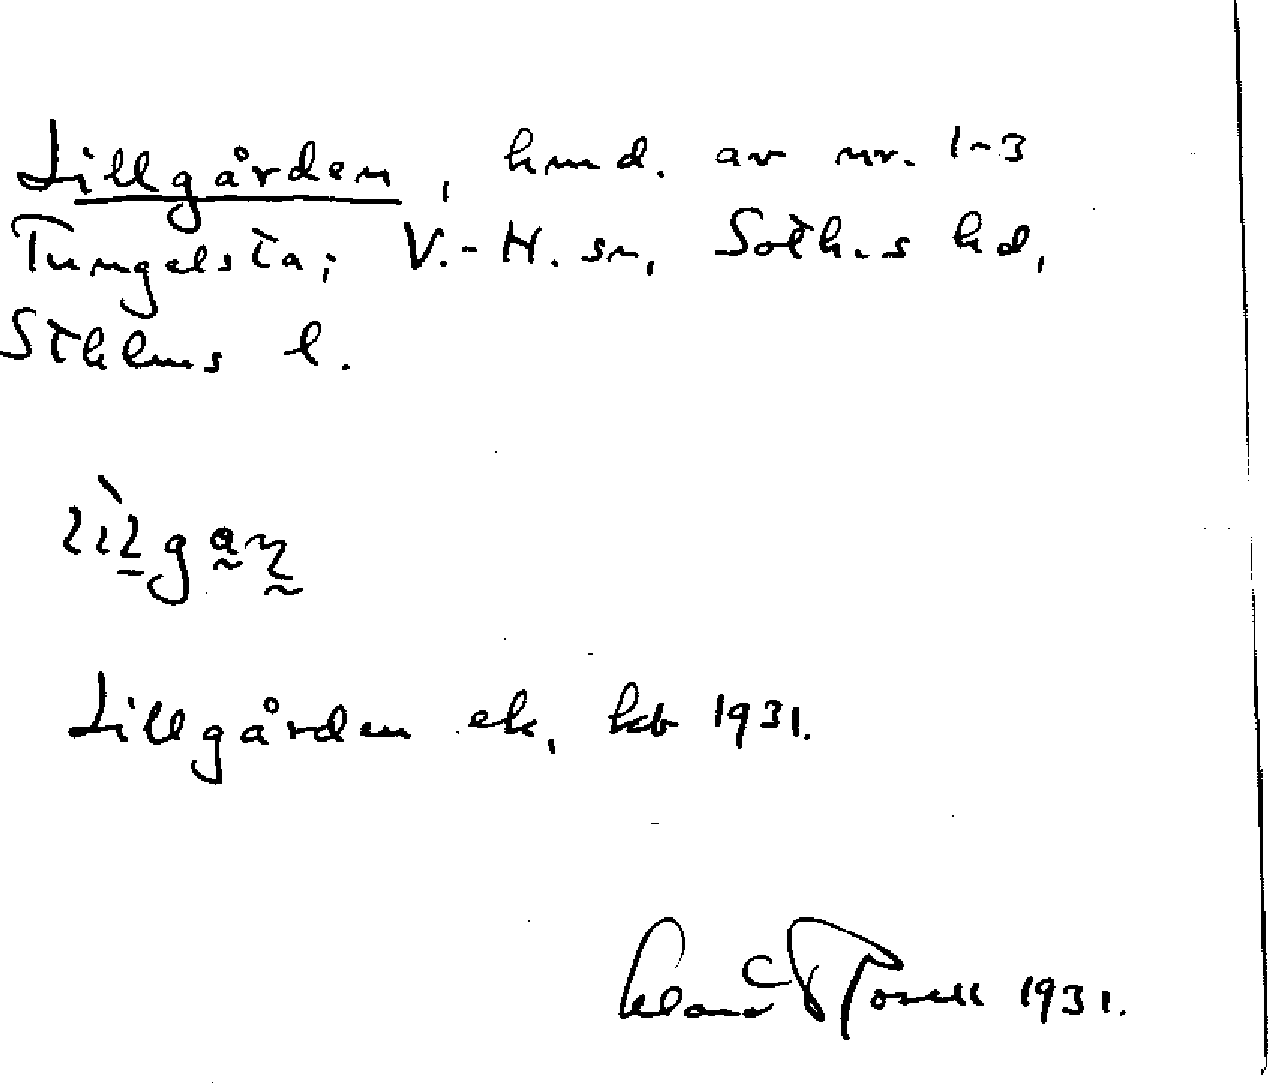 Lillgården, hmd. av nr. 1-3
Tungelsta; V.-H. sn, Soths hd,
Sthlms l.
Lillgården ek, kb 1931.
1931.